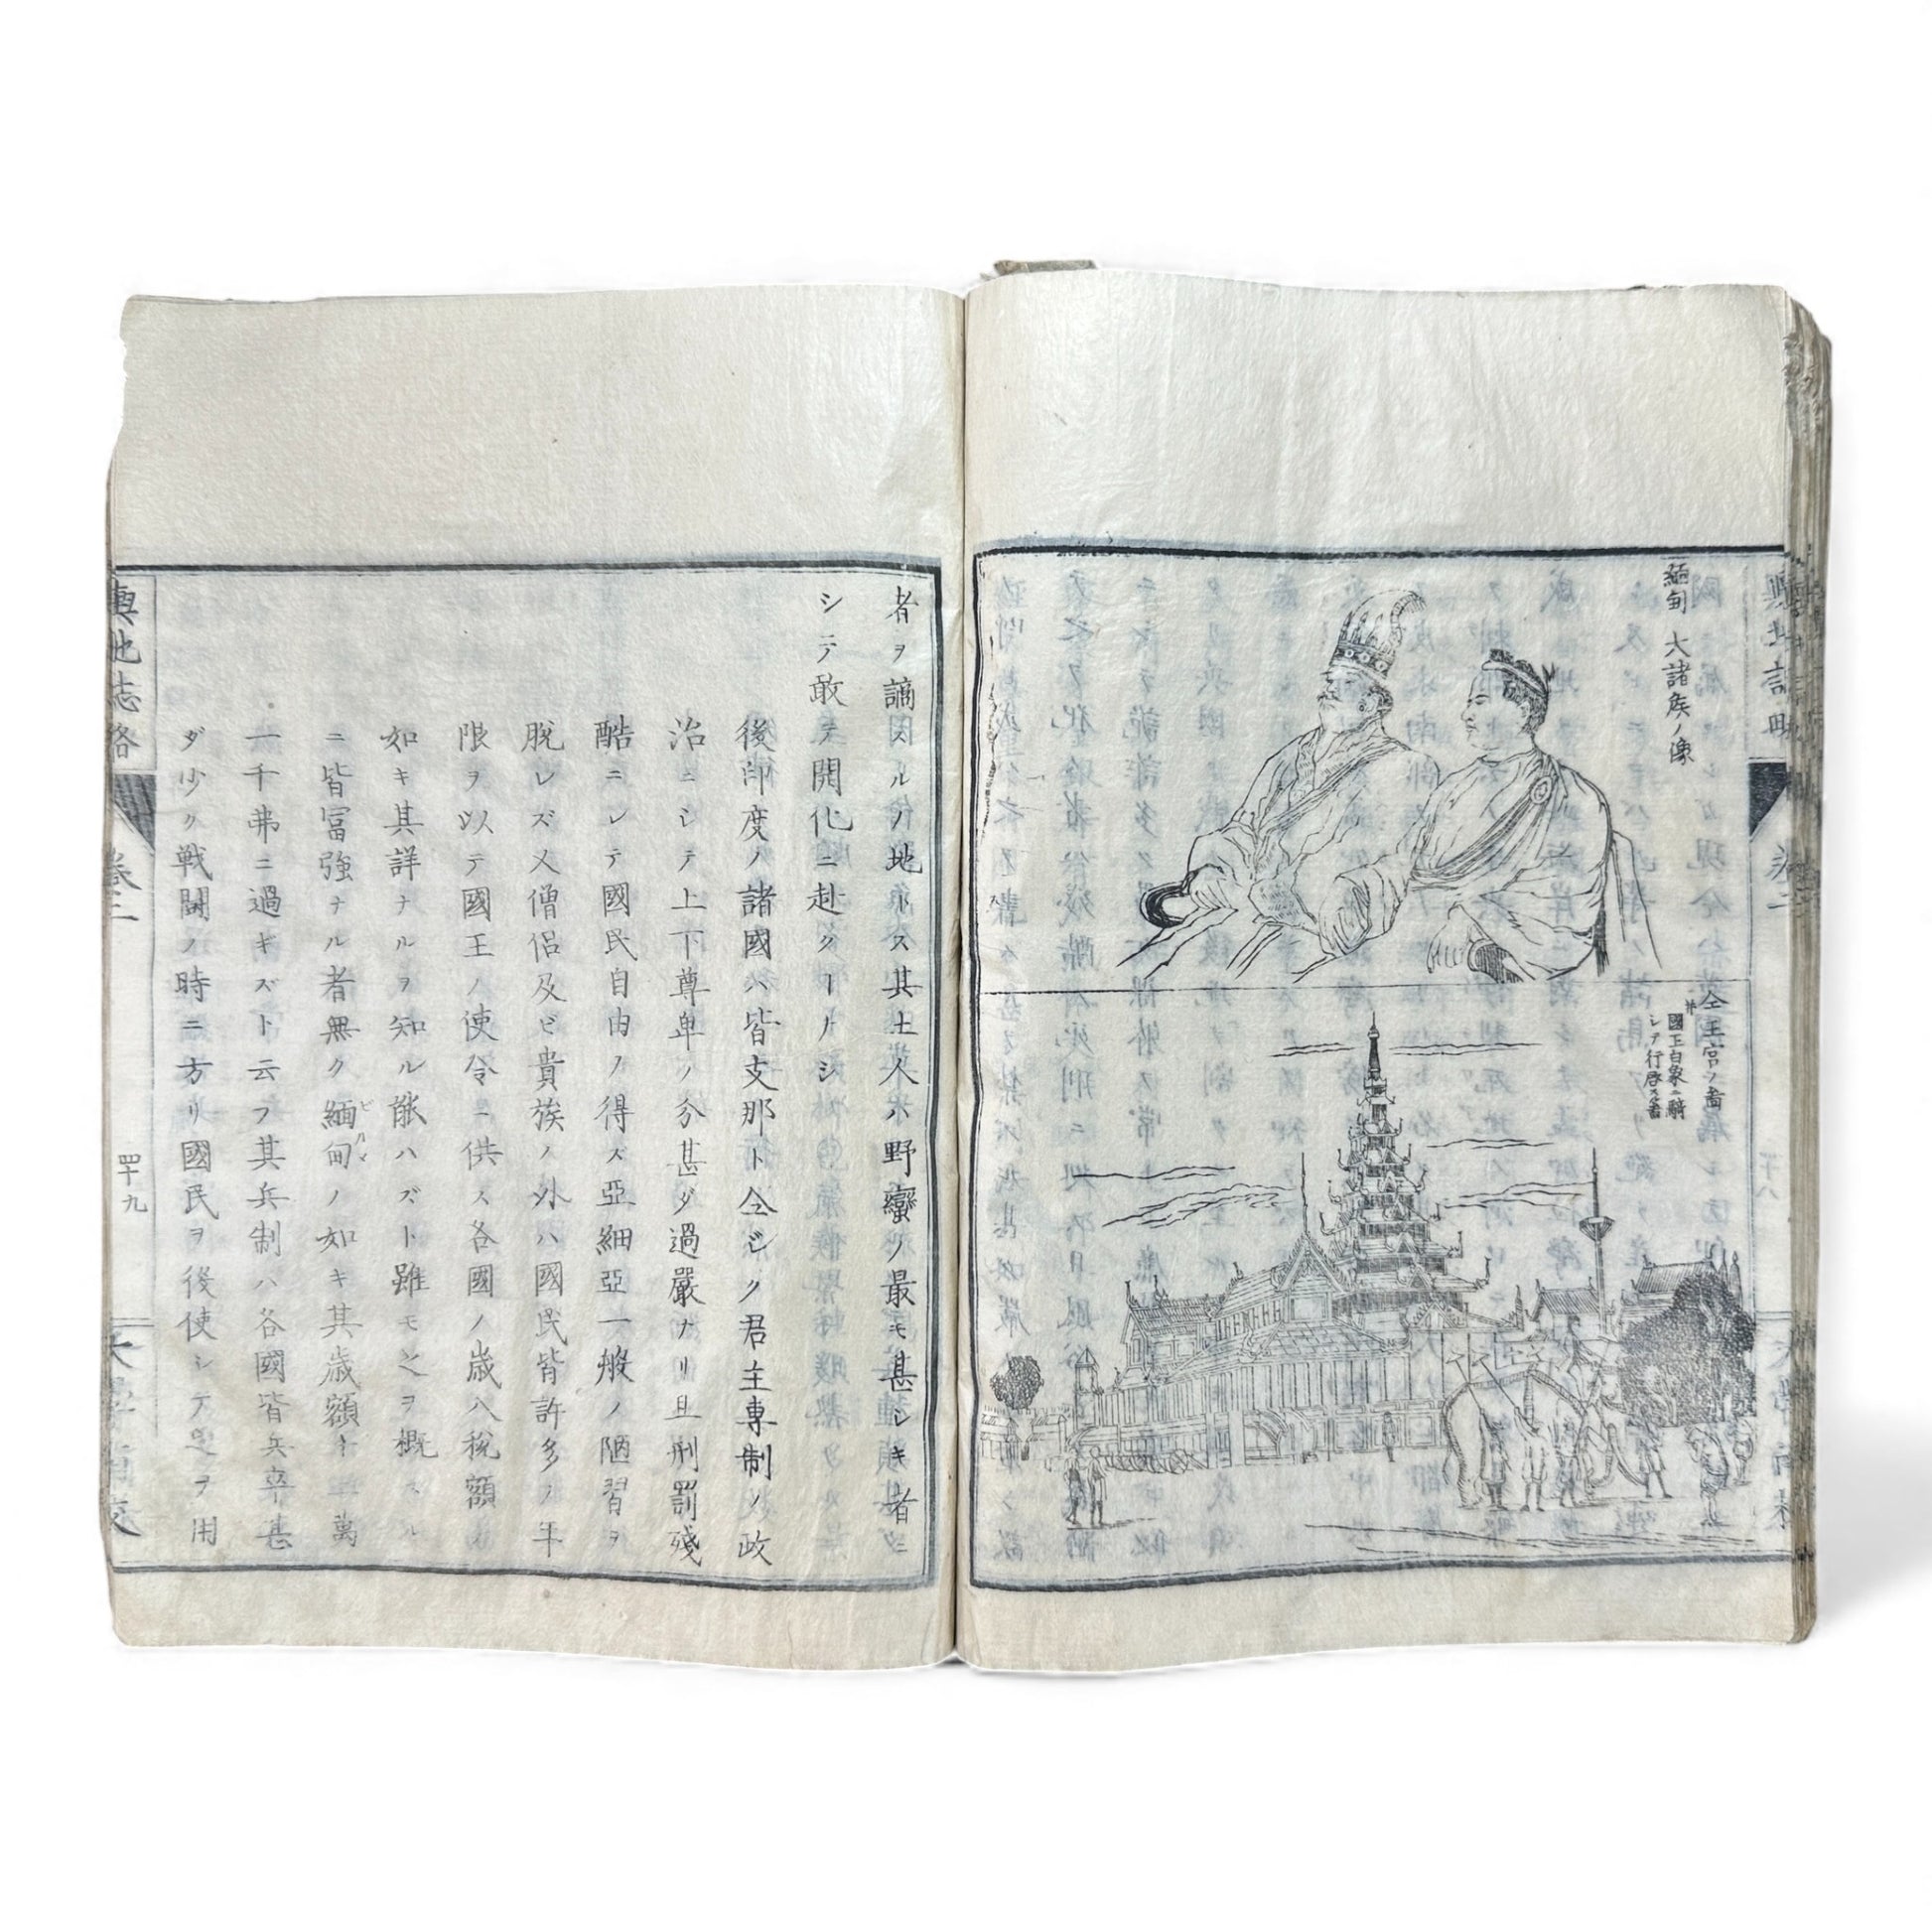 緬甸 大諸矦ノ像
仝王宮ノ圖
并
國王白象ニ騎
シテ行啓ス圖
者ヲ謫スルノ地トス其土人ハ野蠻ノ最モ甚シキ者ニ
シテ敢テ開化ニ赴クヿナシ
後印度ノ諸國ハ皆支那ト仝ジク君主專制ノ政
治ニシテ上下尊卑ノ分甚ダ過嚴ナリ且刑罰殘
酷ニシテ國民自由ヲ得ズ亞細亞一般ノ陋習ヲ
脫レズ又僧侶及ビ貴族ノ外ハ國民皆許多ノ年
限ヲ以テ國王ノ使令ニ供ス各國ノ歲入稅額ノ
如キ其詳ナルヲ知ル能ハズト雖モ之ヲ概スルニ
皆冨強ナル者無ク緬甸ノ如キ其歲額十二萬
一千弗ニ過ギズト云フ其兵制ハ各國皆兵卒甚
ダ少ク戰鬪ノ時ニ方リ國民ヲ役使シテ是ヲ用
輿地志略
卷三
四十九
大學南校